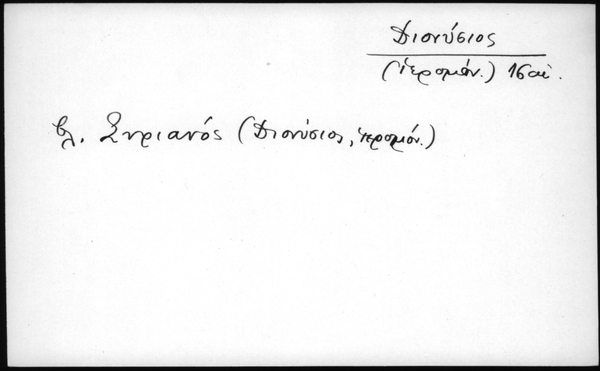 Διονύσιος
(ἱερομόν.) 16 αἰ.
βλ. Συριανός (Διονύσιος, ἱερομόν.)